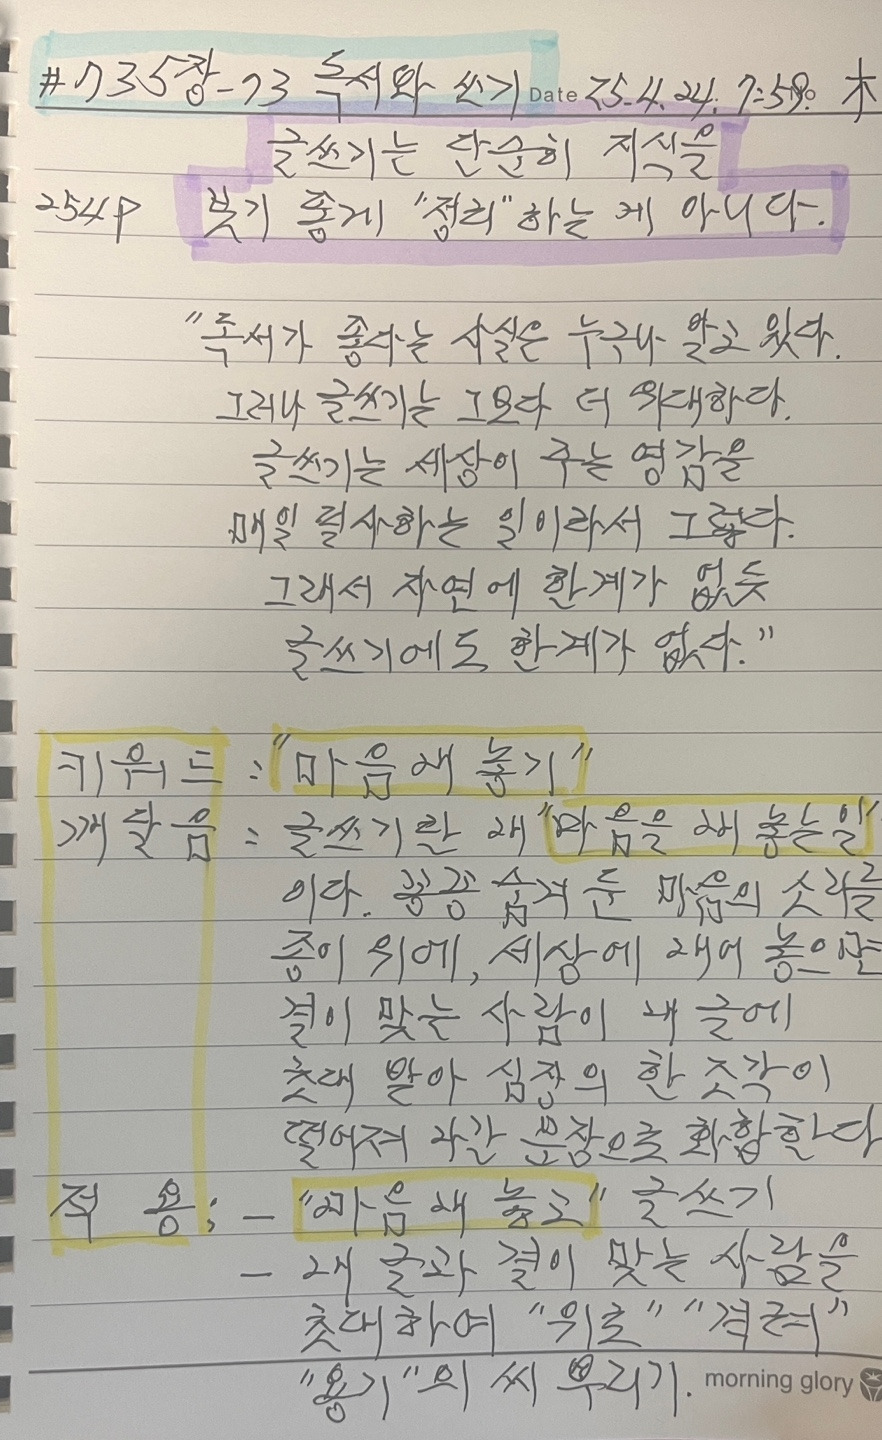 #735장-73 독서와 쓰기 Date 25.4.24. 7:59. No 木
글쓰기는 단순히 지식을
254P 보기 좋게 "정리"하는 게 아니다.
"독서가 좋다는 사실은 누구나 알고 있다.
그러나 글쓰기는 그보다 더 위대하다.
글쓰기는 세상이 주는 영감을
매일 필사하는 일이라서 그렇다.
그래서 자연에 한계가 없듯
글쓰기에도 한계가 없다."
키워드 : "마음 내 놓기"
깨달음 : 글쓰기란 내 "마음을 내 놓는 일"
이다. 꽁꽁 숨겨 둔 마음의 소리를
종이 위에, 세상에 내어 놓으면
결이 맞는 사람이 내 글에
초대 받아 심장의 한 조각이
떨어져 나간 문장으로 화합한다
적 용 : - "마음 내 놓고" 글쓰기
- 내 글과 결이 맞는 사람을
초대하여 "위로" "격려"
"용기"의 씨 뿌리기. morning glory